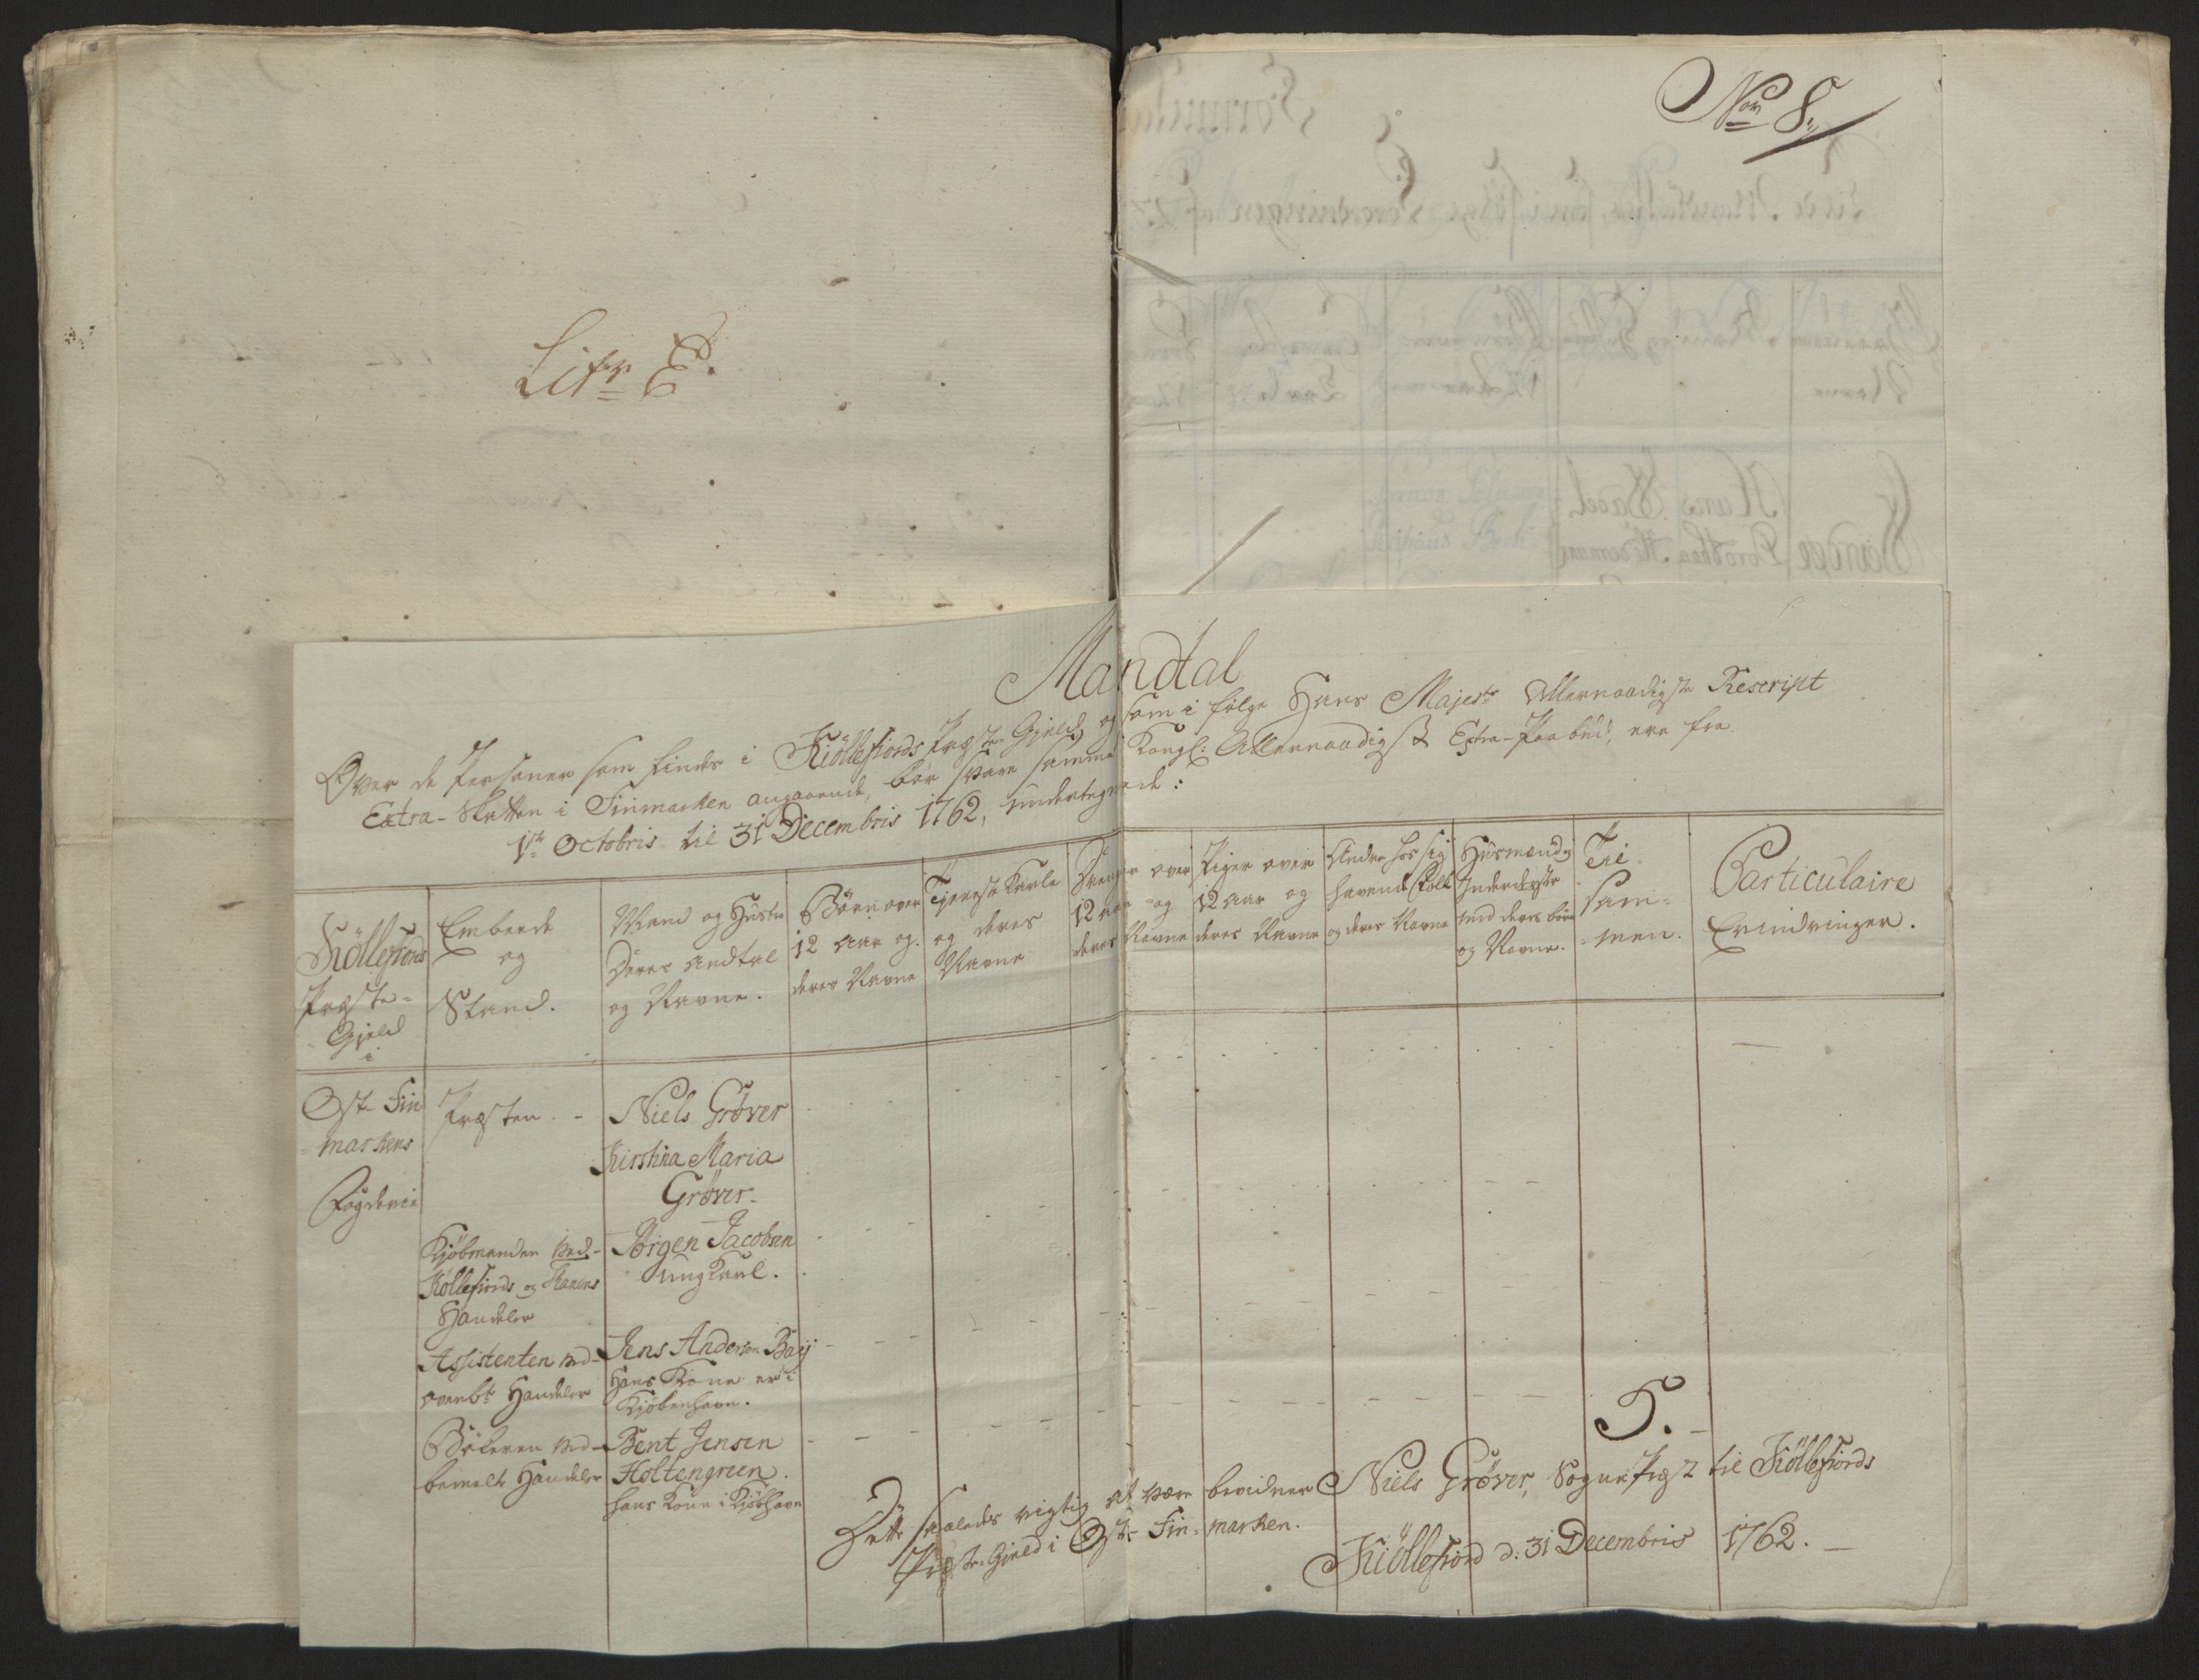 Litr E.
No 8.
Mandtal
Over de Personer som findes i Kiöllefiords Præste-Gield, og som i følge Hans Majests Allernaadigste Rescript
Extra-Skatten i Finmarken angaaende, bör svare samme Kongl: Allernaadigst Extra-Paabud, ere fra
1ste Octobris til 31 Decembris 1762, undertegnede:
Kiöllefiords
Præste-
Gield
i
Embede
og
Stand.
Mand og Hustru
Deres Andtal
og Navne.
Börn over
12 Aar og
deres Navne
Tjeneste Karle
og deres
Navne
Drenge over
12 Aar og
deres Navne
Piger over
12 Aar og
deres Navne
Andre hos sig
havende Folk
og deres Navne
Husmænd og
Inderster
med deres börn
og Navne.
Til
sam-
men.
Particulaire
Erindringer.
Ost-Fin
markens
Fogderie
Præsten. -
Niels Gröver
Kirstina Maria
Gröver.
Kjöbmanden ved-
Köllefiords og Omgangs
Handeler
Jörgen Jacobsen
ung Karl.
Assistenten ved-
ovenbte Handeler
Jens Andersen Bay
Hans Kone er i
Kjöbenhavn.
Bökeren ved-
bemelte Handeler
Bent Jensen
Holtengreen.
hans Kone i Kiöbhavn
5.
Dette saaledes rigtig at være bevidner Niels Gröver, Sogne Præst til Kiöllefiords
Præste-Gield i Ost-Fin-marken.
Kiöllefiord d: 31 Decembris 1762.